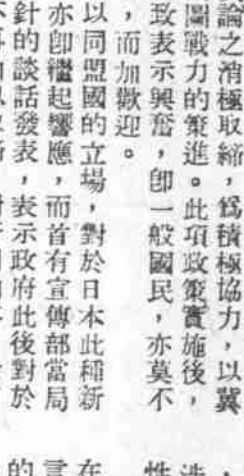 論之消極取締，爲積極協力，以冀
圖戰力的策進。此項政策實施後，
致表示興奮，卽一般國民，亦莫不
，而加歡迎。
以同盟國的立場，對於日本此種新
亦卽繼起響應，而首有宣傳部當局
針的談話發表，表示政府此後對於
，
性
在
言
的